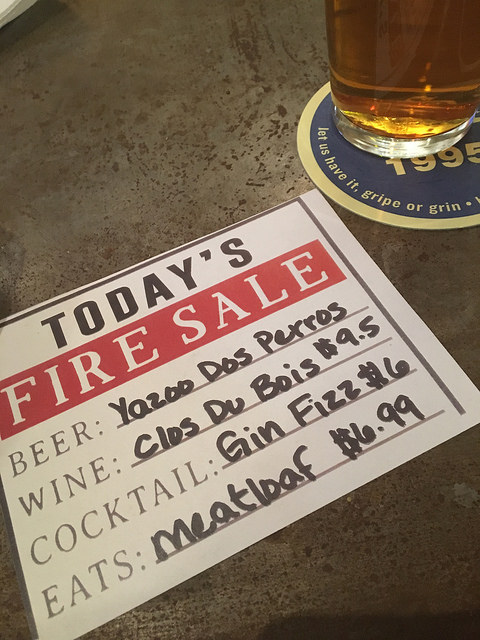 1995
let us have it, gripe or grin •
TODAY'S
FIRE SALE
BEER: Yazoo Dos Perros
WINE: Clos Du Bois $9.5
COCKTAIL: Gin Fizz $6
EATS: Meatloaf $6.99